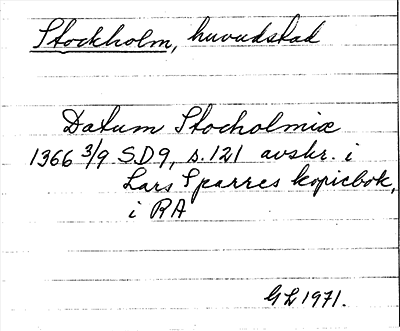 Stockholm, huvudstad
Datum Stocholmiæ
1366 3/9 S.D9, s.121 avskr. i
Lars Sparres kopiebok,
i RA
GL 1971.